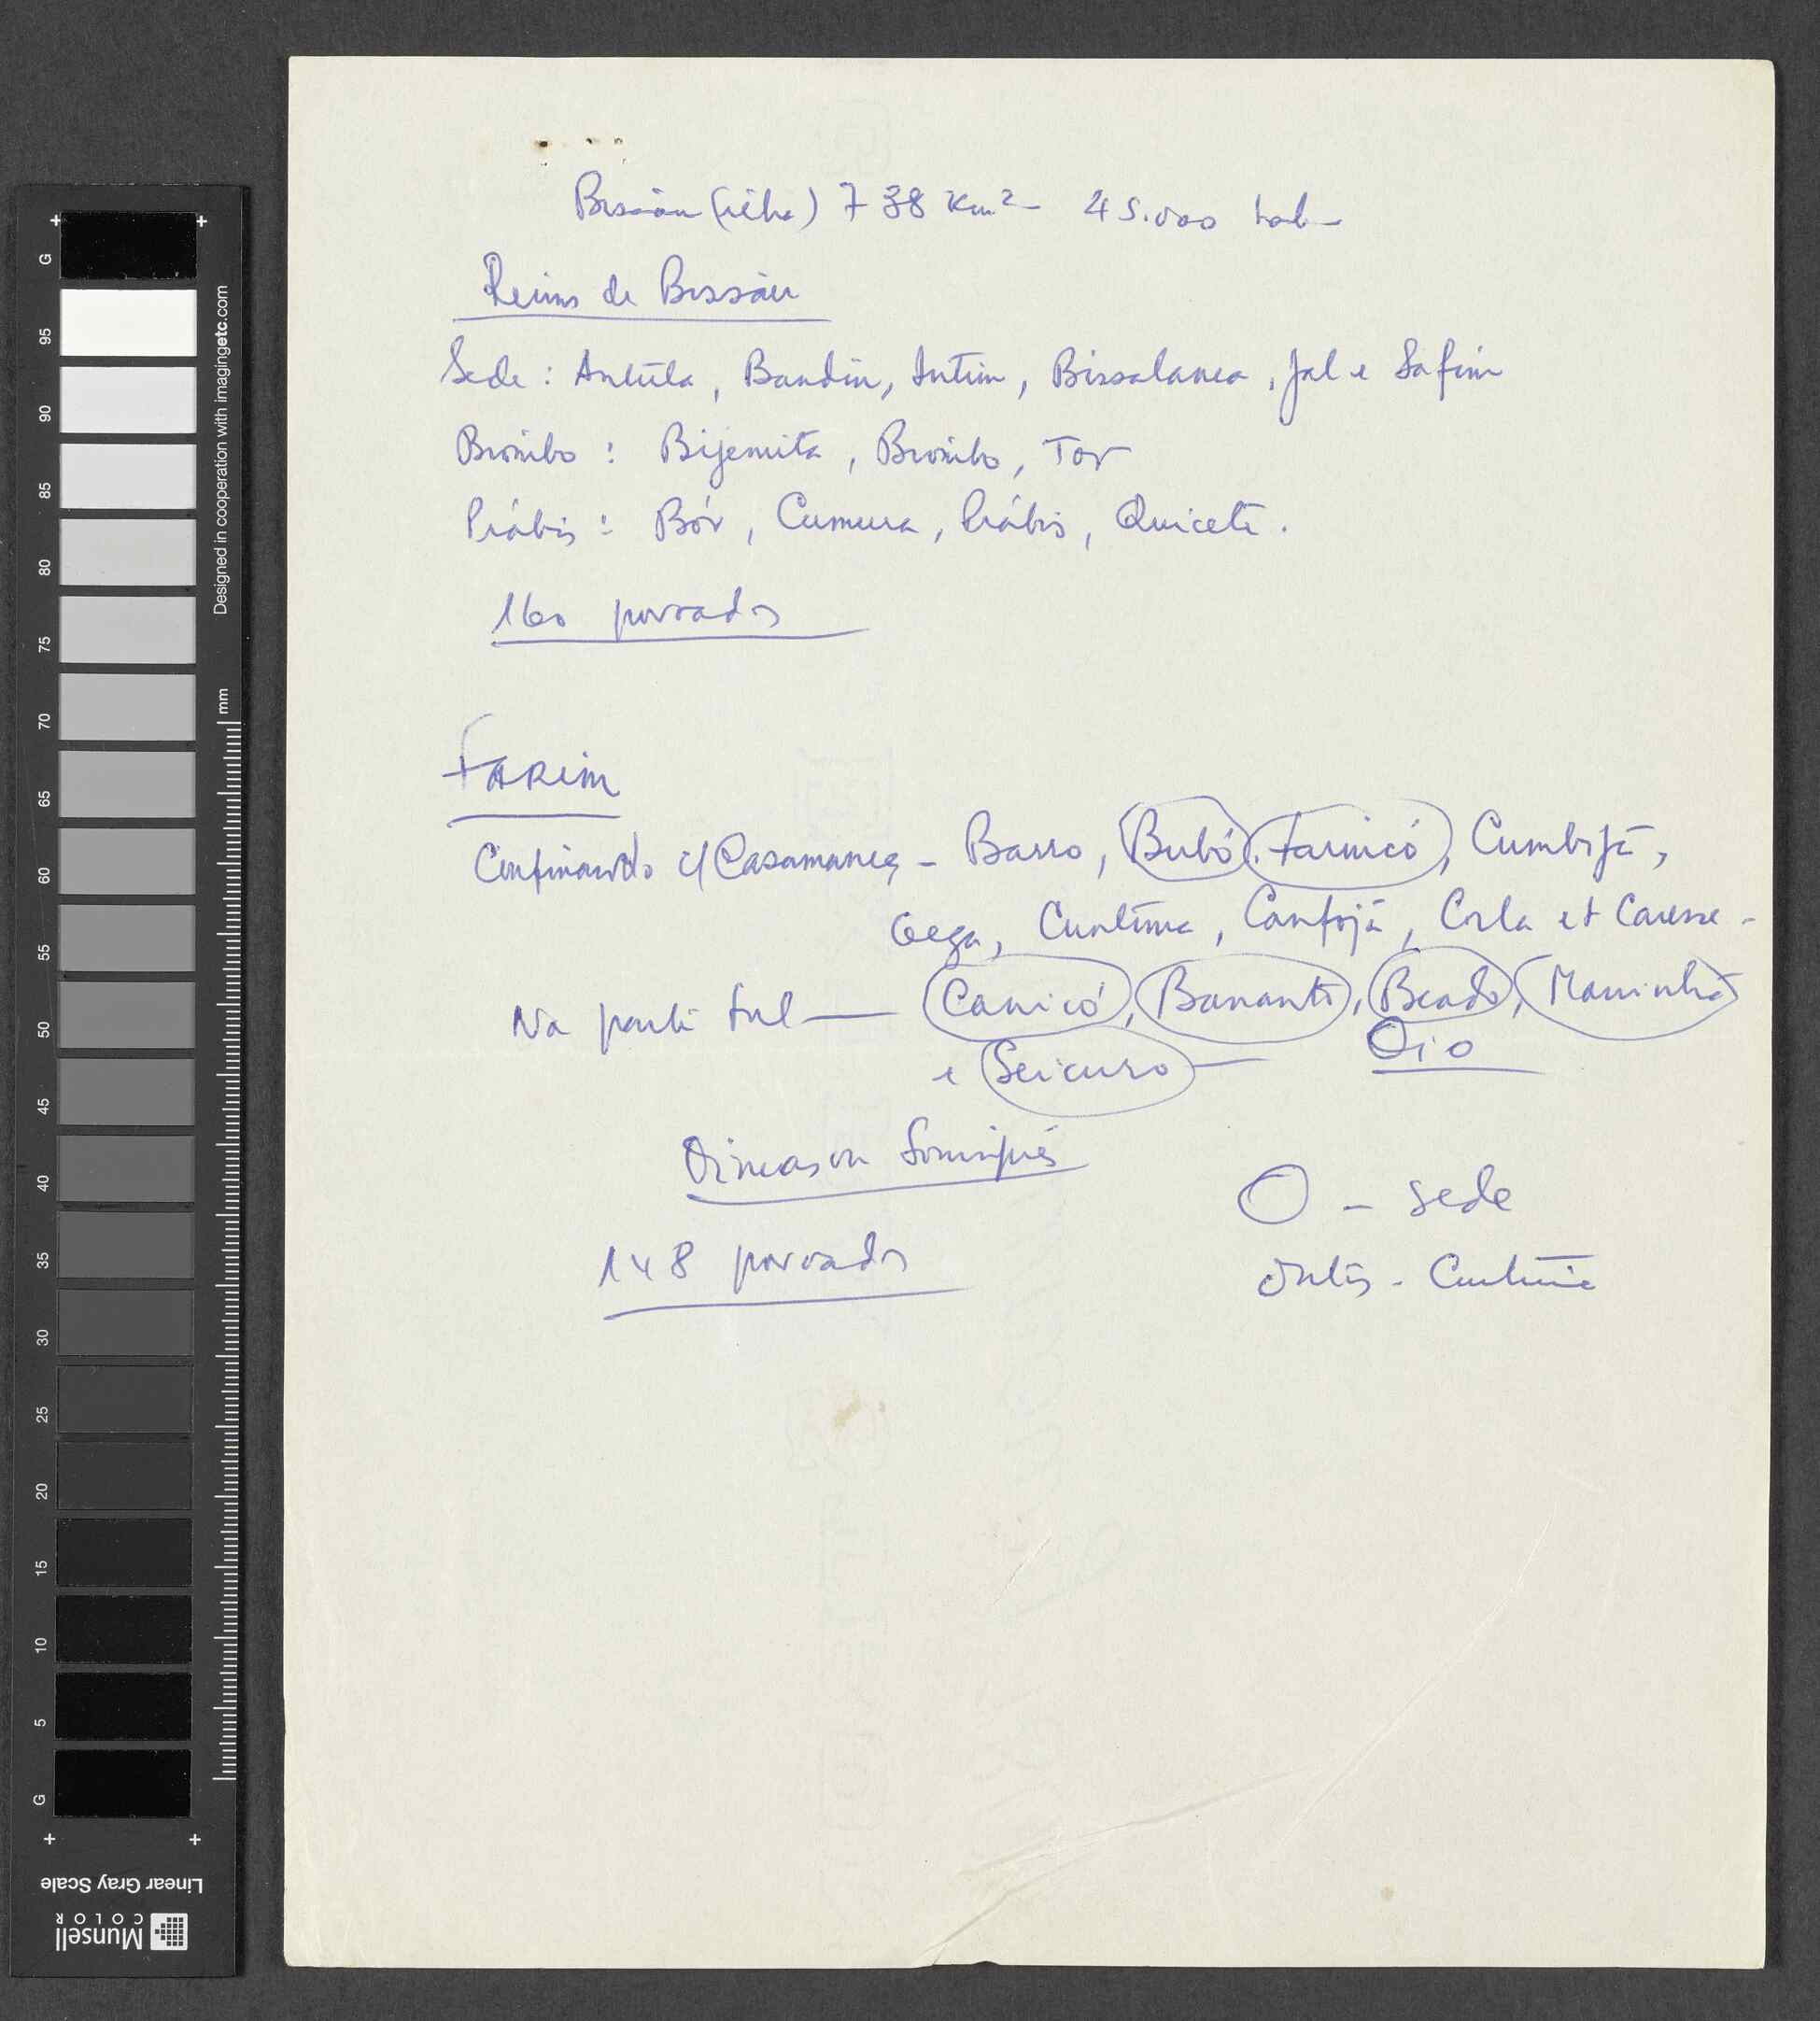 Bissau (ilha) 738 Km² 45.000 hab-
Reinos de Bissáu
Sede : Antúla, Bandim, Intim, Bissalanca, Jal e Safim
Biombo : Bijemita, Biombo, Tor
Prábis : Bór, Cumura, Prábis, Quicete.
160 povoados
FARim
Confinando c/ Casamança - Barro, Bubó, Farincó, Cumbijã,
Gega, Cuntima, Canfojã, Corla et Caresse -
Na parte Sul — Canicó, Bananto, Beado, Maninhã
e Seicuro — Oio
Dimeason Soninqués
O - sede
148 povoados
Outros - Cuntima
G 95 90 85 80 75 70 65 60 55 50 45 40 35 30 25 20 15 10 5 G
Designed in cooperation with imagingetc.com
mm
Linear Gray Scale
Munsell
COLOR